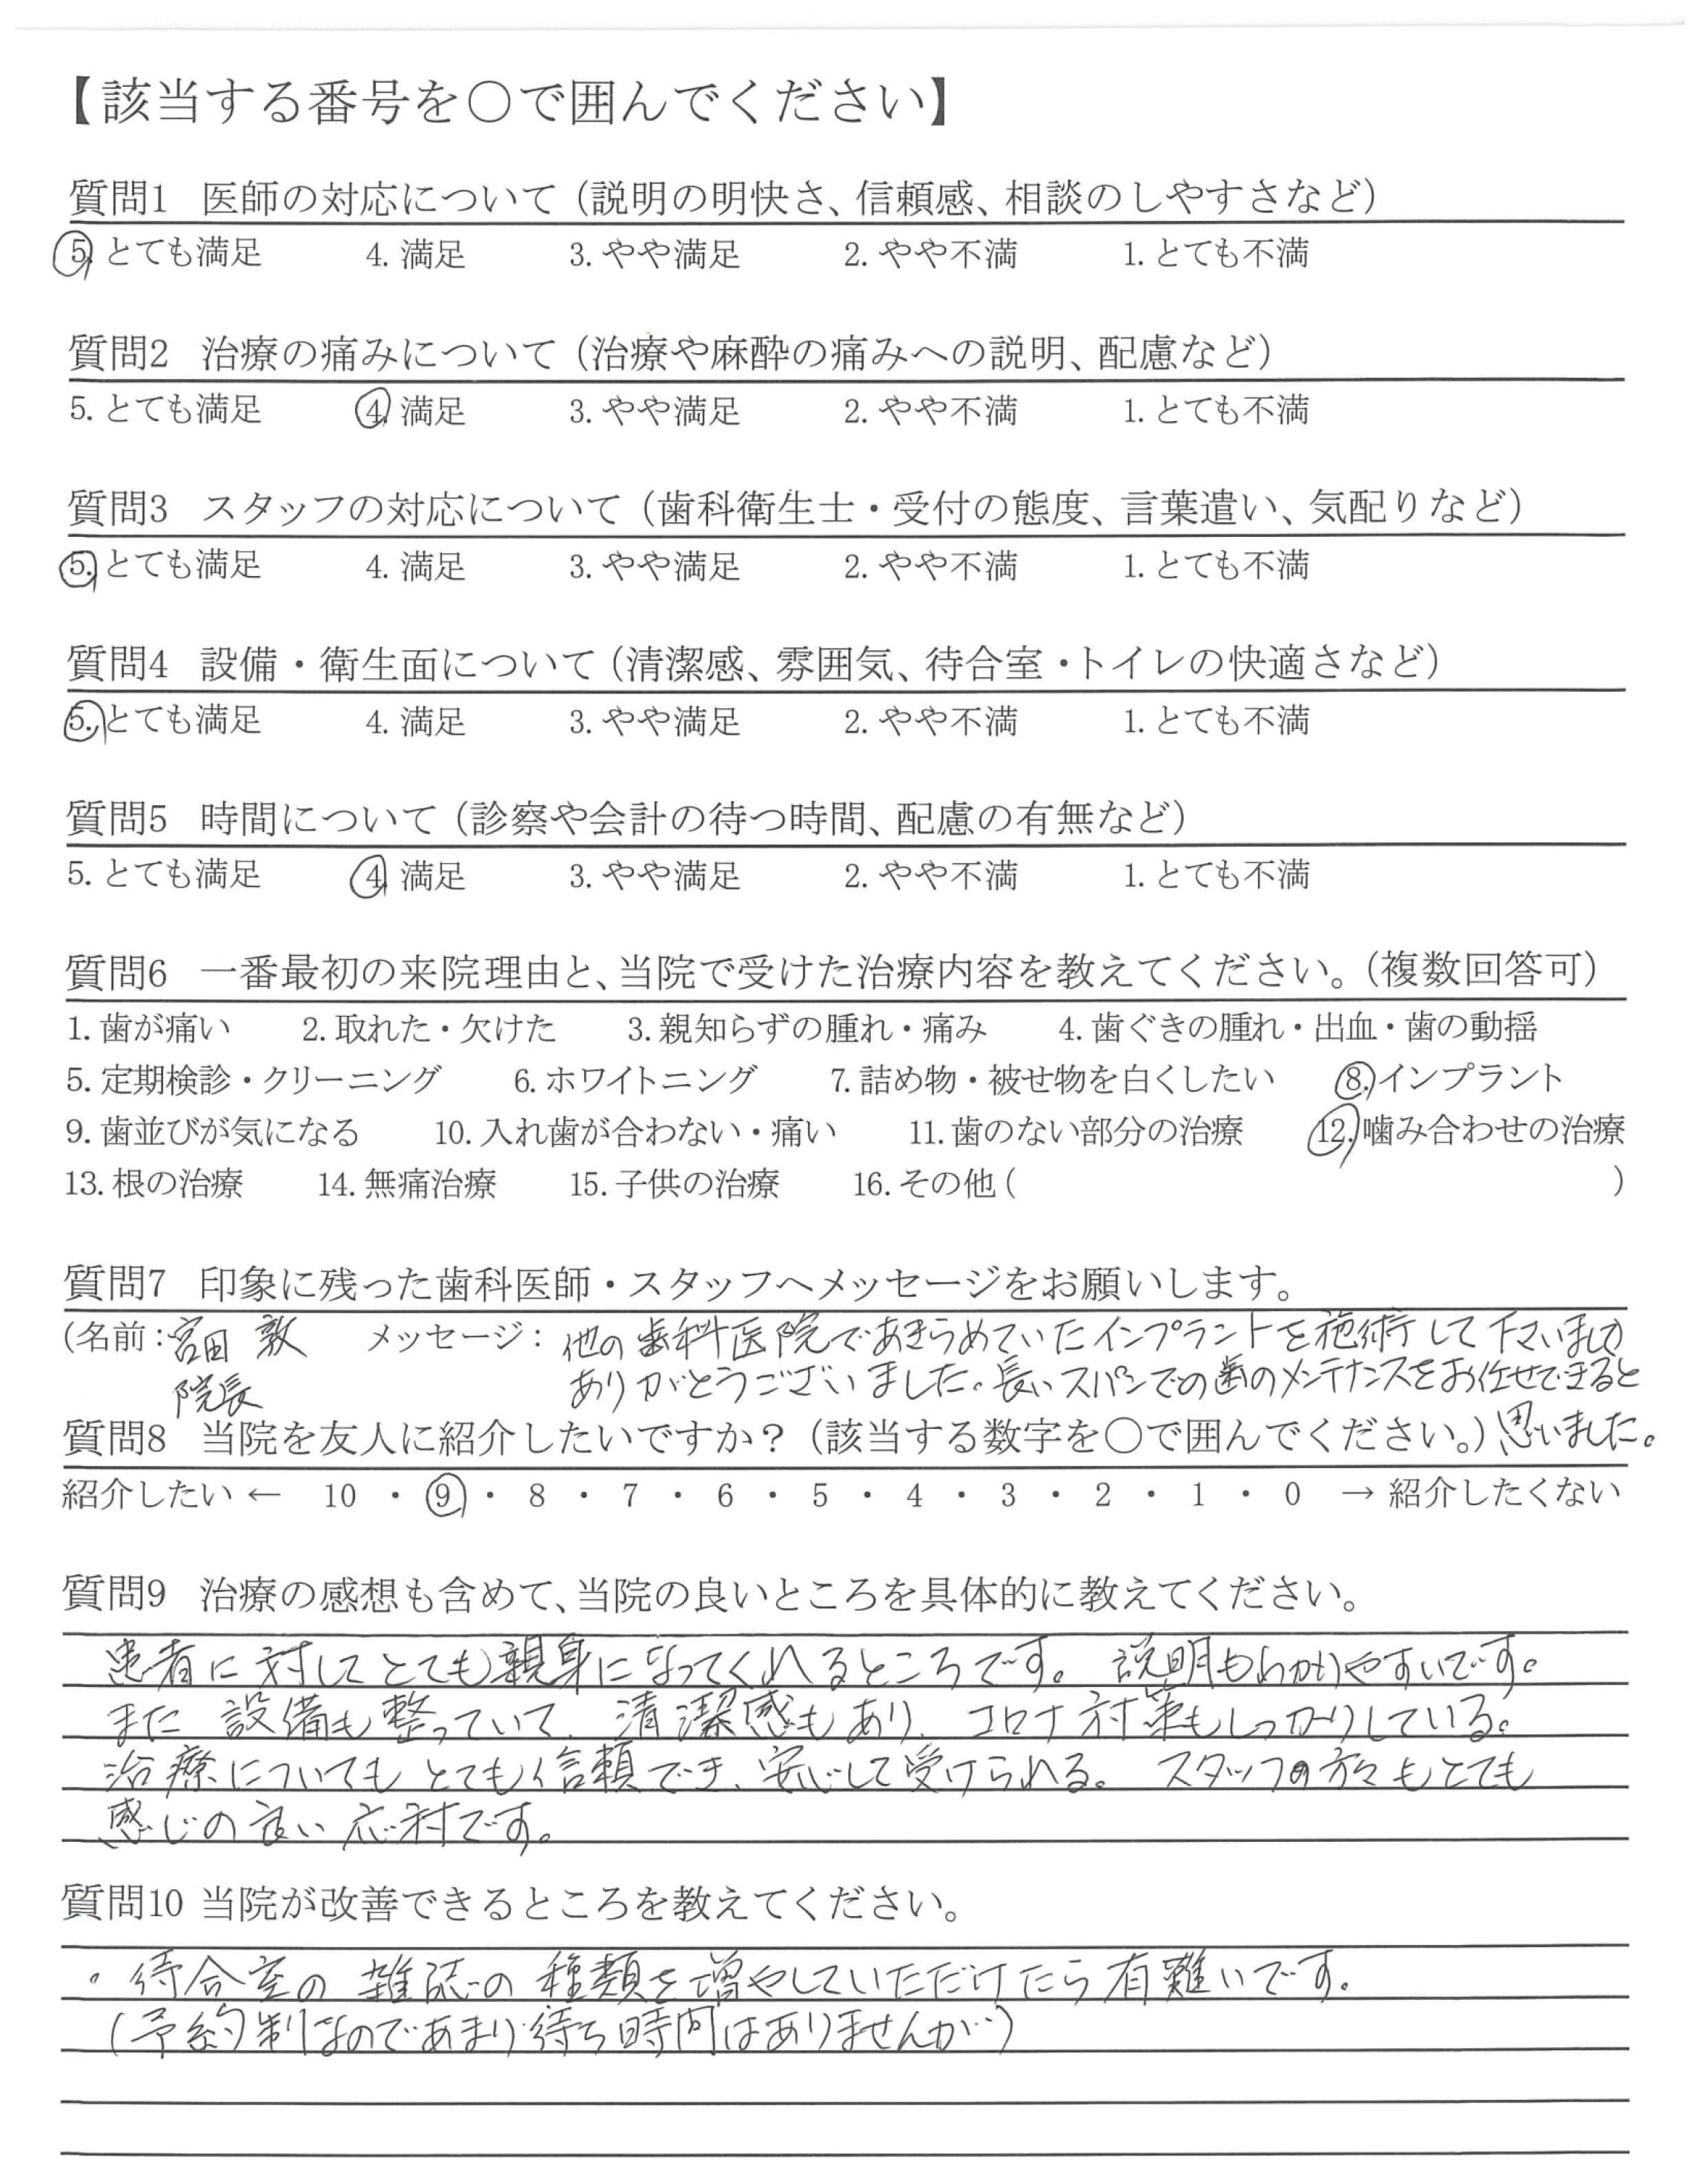 【該当する番号を○で囲んでください】
質問1 医師の対応について（説明の明快さ、信頼感、相談のしやすさなど）
5. とても満足 4. 満足 3. やや満足 2. やや不満 1. とても不満
質問2 治療の痛みについて（治療や麻酔の痛みへの説明、配慮など）
5. とても満足 4. 満足 3. やや満足 2. やや不満 1. とても不満
質問3 スタッフの対応について（歯科衛生士・受付の態度、言葉遣い、気配りなど）
5. とても満足 4. 満足 3. やや満足 2. やや不満 1. とても不満
質問4 設備・衛生面について（清潔感、雰囲気、待合室・トイレの快適さなど）
5. とても満足 4. 満足 3. やや満足 2. やや不満 1. とても不満
質問5 時間について（診察や会計の待つ時間、配慮の有無など）
5. とても満足 4. 満足 3. やや満足 2. やや不満 1. とても不満
質問6 一番最初の来院理由と、当院で受けた治療内容を教えてください。（複数回答可）
1. 歯が痛い 2. 取れた・欠けた 3. 親知らずの腫れ・痛み 4. 歯ぐきの腫れ・出血・歯の動揺
5. 定期検診・クリーニング 6. ホワイトニング 7. 詰め物・被せ物を白くしたい 8. インプラント
9. 歯並びが気になる 10. 入れ歯が合わない・痛い 11. 歯のない部分の治療 12. 噛み合わせの治療
13. 根の治療 14. 無痛治療 15. 子供の治療 16. その他（ ）
質問7 印象に残った歯科医師・スタッフへメッセージをお願いします。
（名前：宮田 敦 メッセージ：他の歯科医院であきらめていたインプラントを施術して下さいまして
院長 ありがとうございました。長いスパンでの歯のメンテナンスをお任せできると
質問8 当院を友人に紹介したいですか？（該当する数字を○で囲んでください。） 思いました。
紹介したい ← 10 ・ 9 ・ 8 ・ 7 ・ 6 ・ 5 ・ 4 ・ 3 ・ 2 ・ 1 ・ 0 → 紹介したくない
質問9 治療の感想も含めて、当院の良いところを具体的に教えてください。
患者に対してとても親身になってくれるところです。説明もわかりやすいです。
また 設備も整っていて、清潔感もあり、コロナ対策もしっかりしている。
治療についてもとても信頼でき、安心して受けられる。スタッフの方々もとても
感じの良い応対です。
質問10 当院が改善できるところを教えてください。
・待合室の雑誌の種類を増やしていただけたら有難いです。
（予約制なのであまり待ち時間はありませんが…）